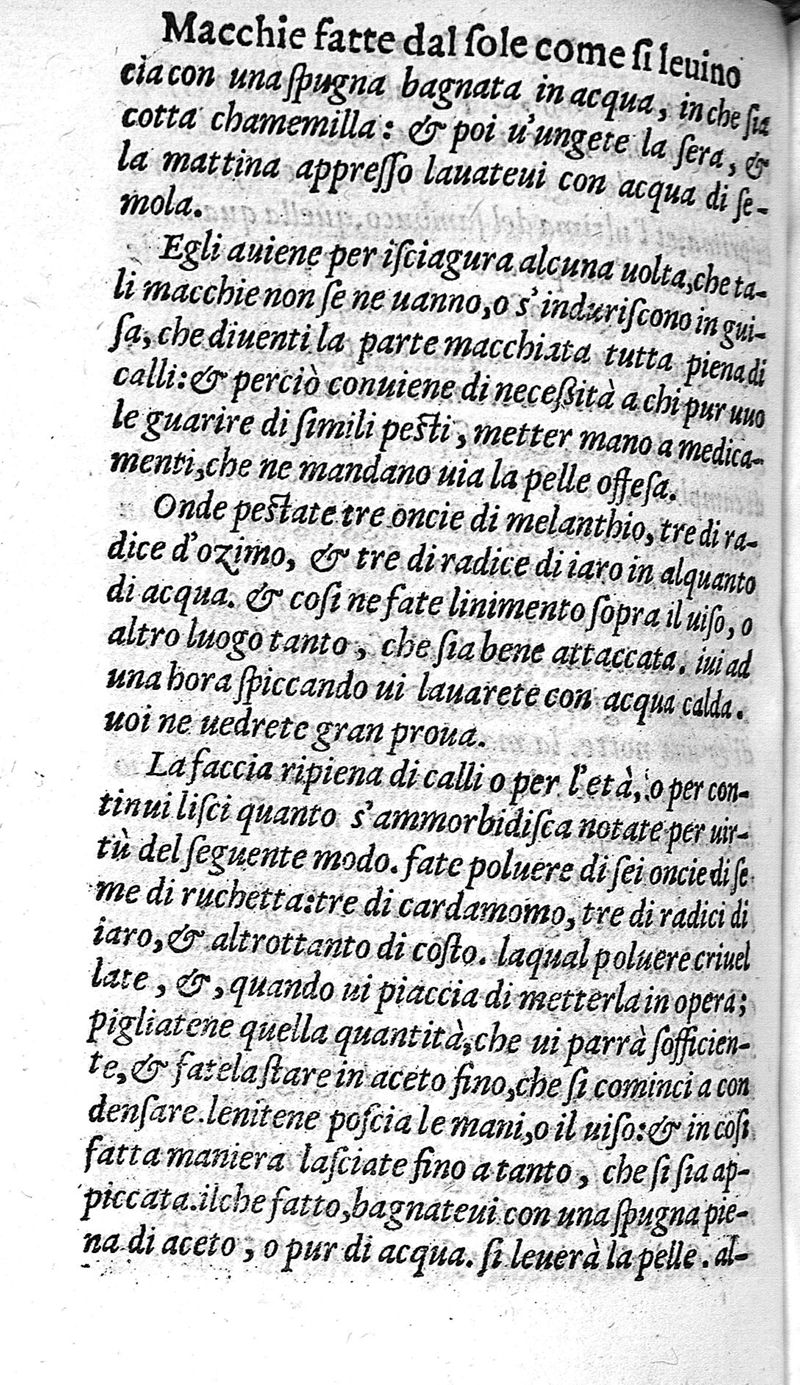 Macchie fatte dal ſole come ſi leuino
cia con una ſpugna bagnata in acqua, in che ſia
cotta chamemilla: & poi u'ungete la ſera, &
la mattina appreſſo lauateui con acqua di ſe-
mola.
Egli auiene per iſciagura alcuna uolta, che ta-
li macchie non ſe ne uanno, o s'induriſcono in gui-
ſa, che diuenti la parte macchiata tutta piena di
calli: & perciò conuiene di neceßità a chi pur uuo
le guarire di ſimili peſti, metter mano a medica-
menti, che ne mandano uia la pelle offeſa.
Onde peſtate tre oncie di melanthio, tre di ra-
dice d'ozimo, & tre di radice di iaro in alquanto
di acqua. & coſi ne fate linimento ſopra il uiſo, o
altro luogo tanto, che ſia bene attaccata. iui ad
una hora ſpiccando ui lauarete con acqua calda.
uoi ne uedrete gran proua.
La faccia ripiena di calli o per l'età, o per con-
tinui liſci quanto s'ammorbidiſca notate per uir-
tù del ſeguente modo. fate poluere di ſei oncie di ſe
me di ruchetta: tre di cardamomo, tre di radici di
iaro, & altrottanto di coſto. laqual poluere criuel
late, &, quando ui piaccia di metterla in opera;
pigliatene quella quantità, che ui parrà ſofficien-
te, & fatela ſtare in aceto fino, che ſi cominci a con
denſare. lenitene poſcia le mani, o il uiſo: & in coſi
fatta maniera laſciate fino a tanto, che ſi ſia ap-
piccata. ilche fatto, bagnateui con una ſpugna pie-
na di aceto, o pur di acqua. ſi leuerà la pelle. al-